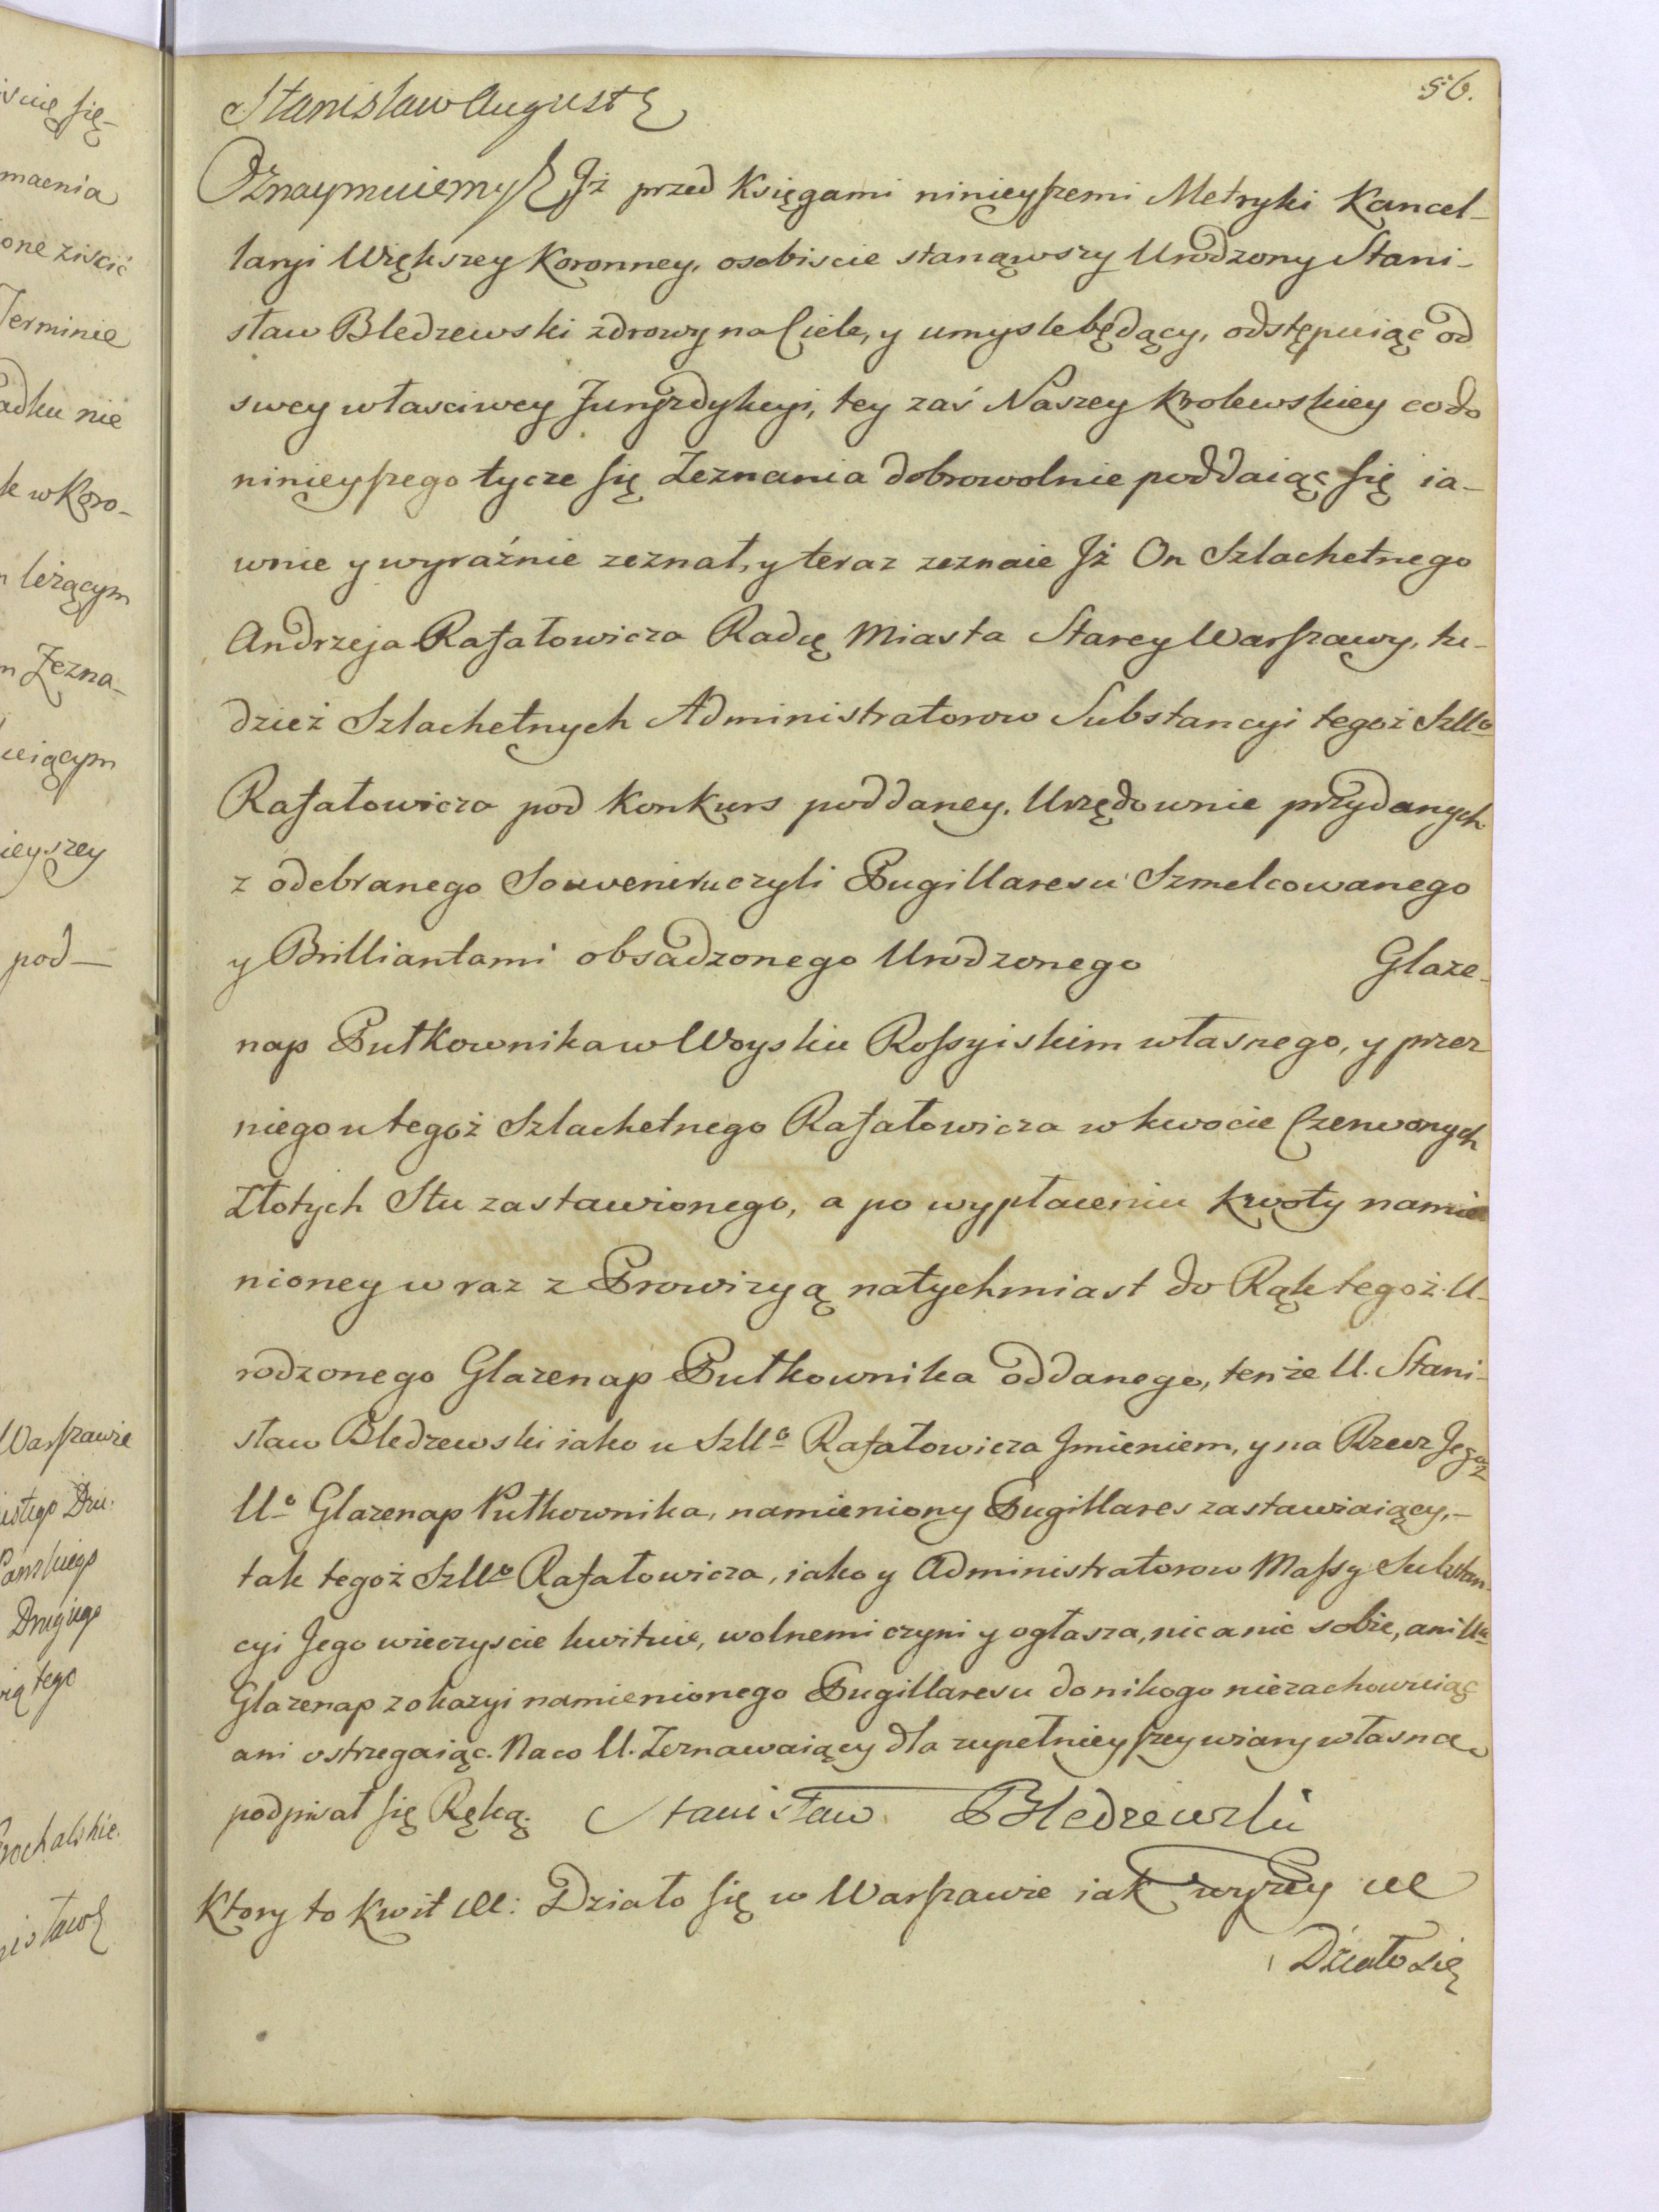 56.
Stanisław August
Oznaymuiemy Iż przed Księgami ninieyszemi Metryki Kancel-
laryi Większey Koronney, osobiscie stanąwszy Urodzony Stani-
sław Bledzewski zdrowy na Ciele, y umysle będący, odstępuiąc od
swey własciwey Juryzdykcyi, tey zaś Naszey Krolewskiey co do
ninieyszego tycze się Zeznania dobrowolnie poddaiąc się ia-
wnie y wyraźnie zeznał, y teraz zeznaie Jż On Szlachetnego
Andrzeja Rafałowicza Radcę Miasta Starey Warszawy, tu-
dzież Szlachetnych Administratorow Substancyi tegoż Szllo
Rafałowicza pod Konkurs poddaney, Urzędownie przydanych
z odebranego Souveniru czyli Pugillaresu Szmelcowanego
y Brilliantami obsadzonego Urodzonego Glaze-
nap Pułkownika w Woysku Rossyiskim własnego, y przez
niego u tegoż Szlachetnego Rafałowicza w kwocie Czerwonych
Złotych Stu zastawionego, a po wypłaceniu kwoty namie
nioney wraz z Prowizyą natychmiast do Rąk tegoż U-
rodzonego Glazenap Pułkownika oddanego, tenże U. Stani-
sław Bledzewski iako u Szllo Rafałowicza Jmieniem, y na Rzecz Jegoż
Uo Glazenap Pułkownika, namieniony Pugillares zastawiaiący,-
tak tegoż Szllo Rafałowicza, iako y Administratorow Massy Substan-
cyi Jego wieczyscie kwituie, wolnemi czyni y ogłasza, nic a nic sobie, ani Uu
Glazenap z okazyi namienionego Pugillaresu do nikogo niezachowuiąc
ani ostrzegaiąc. Na co U. Zeznawaiący dla zupełnieyszey wiary własną
podpisał się Ręką. Stanisław Bledzewski
Ktory to Kwit &c: Działo się w Warszawie iak wyżey &c
Działo się